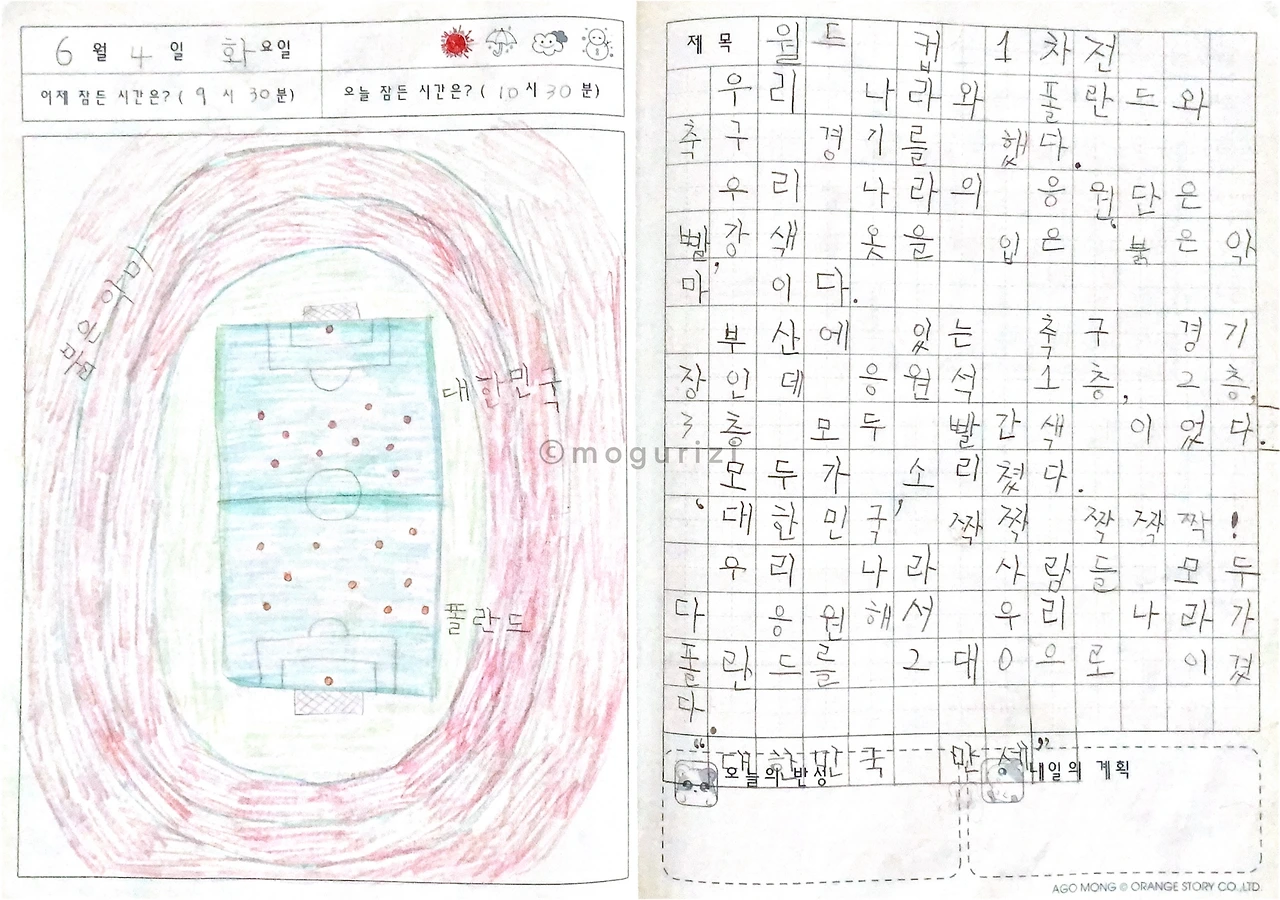 6 월 4 일 화 요일
어제 잠든 시간은? ( 9 시 30 분)
오늘 잠든 시간은? ( 10 시 30 분)
붉은 악마
대한민국
폴란드
© mogurizi
제 목 월드 컵 1차전
우리 나라와 폴란드와
축구 경기를 했다.
우리 나라의 응원단은
빨강색 옷을 입은 붉은 악
마 이다.
부산에 있는 축구 경기
장인데 응원석 1층, 2층,
3층 모두 빨간색 이었다.
모두가 소리쳤다.
'대한민국' 짝짝 짝짝짝!
우리 나라 사람들 모두
다 응원해서 우리 나라가
폴란드를 2대0으로 이겼
다.
"대한민국 만세"
오늘의 반성
내일의 계획
AGO MONG © ORANGE STORY CO. LTD.